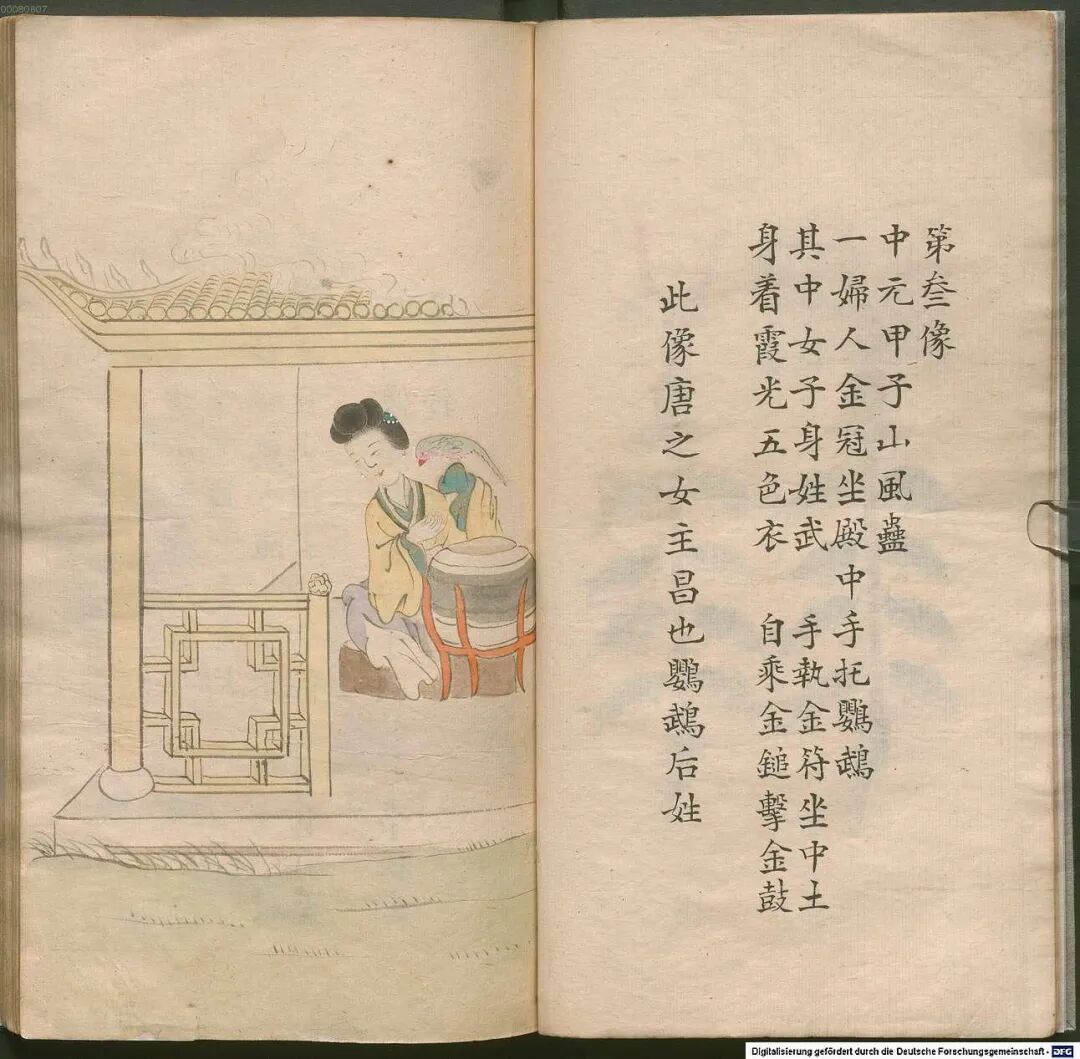 00080807
第叁像
中元甲子山風蠱
一婦人金冠坐殿中手托鸚鵡
其中女子身姓武　手執金符坐中土
身着霞光五色衣　自乘金鎚擊金鼓
此像唐之女主昌也鸚鵡后姓
Digitalisierung gefördert durch die Deutsche Forschungsgemeinschaft - DFG